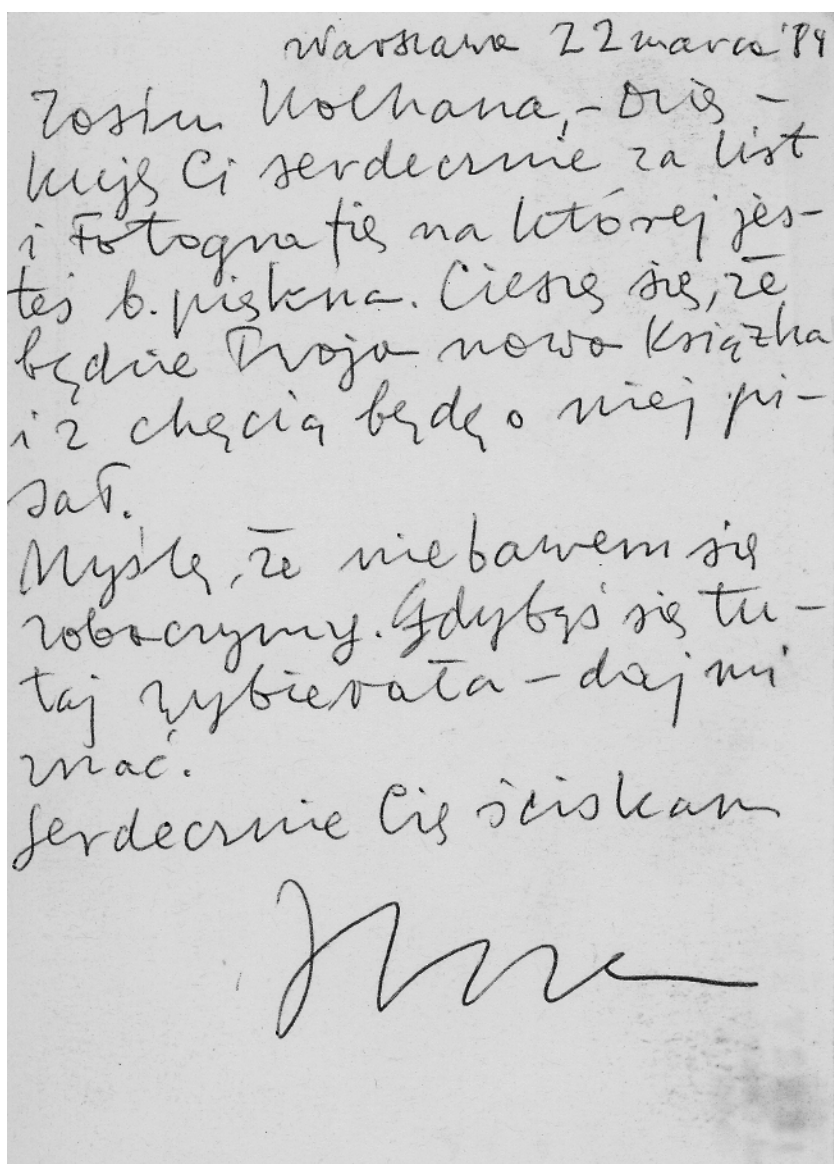 Warszawa 22 marca '84
Zosiu Kochana, – Dzię-
kuję Ci serdecznie za list
i Fotografię na której jes-
teś b. piękna. Cieszę się, że
będzie Twoja nowa Książka
i z chęcią będę o niej pi-
sał.
Myślę, że niebawem się
zobaczymy. Gdybyś się tu-
taj wybierała – daj mi
znać.
Serdecznie Cię ściskam